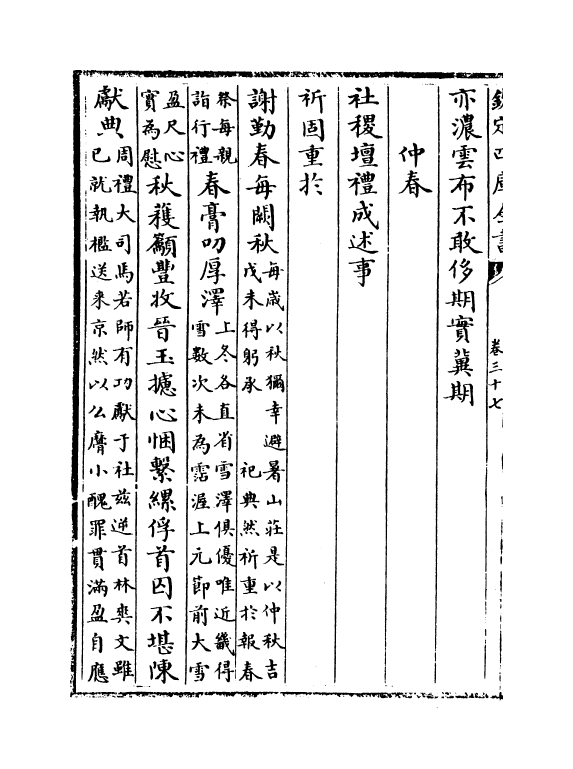 欽定四庫全書
卷三十七
亦濃雲布不敢侈期實冀期
仲春
社稷壇禮成述事
祈固重於
謝勤春每闕秋
每歲以秋獮幸避暑山莊是以仲秋吉
戊未得躬承 祀典然祈重於報春
祭每親
詣行禮
春膏叨厚澤
上冬各直省雪澤俱優唯近畿得
雪數次未為霑渥上元節前大雪
盈尺心
實為慰
秋穫籲豐收晉玉攄心悃繫縲俘首囚不堪陳
獻典
周禮大司馬若師有功獻于社兹逆首林爽文雖
已就執檻送来京然以么麽小醜罪貫滿盈自應